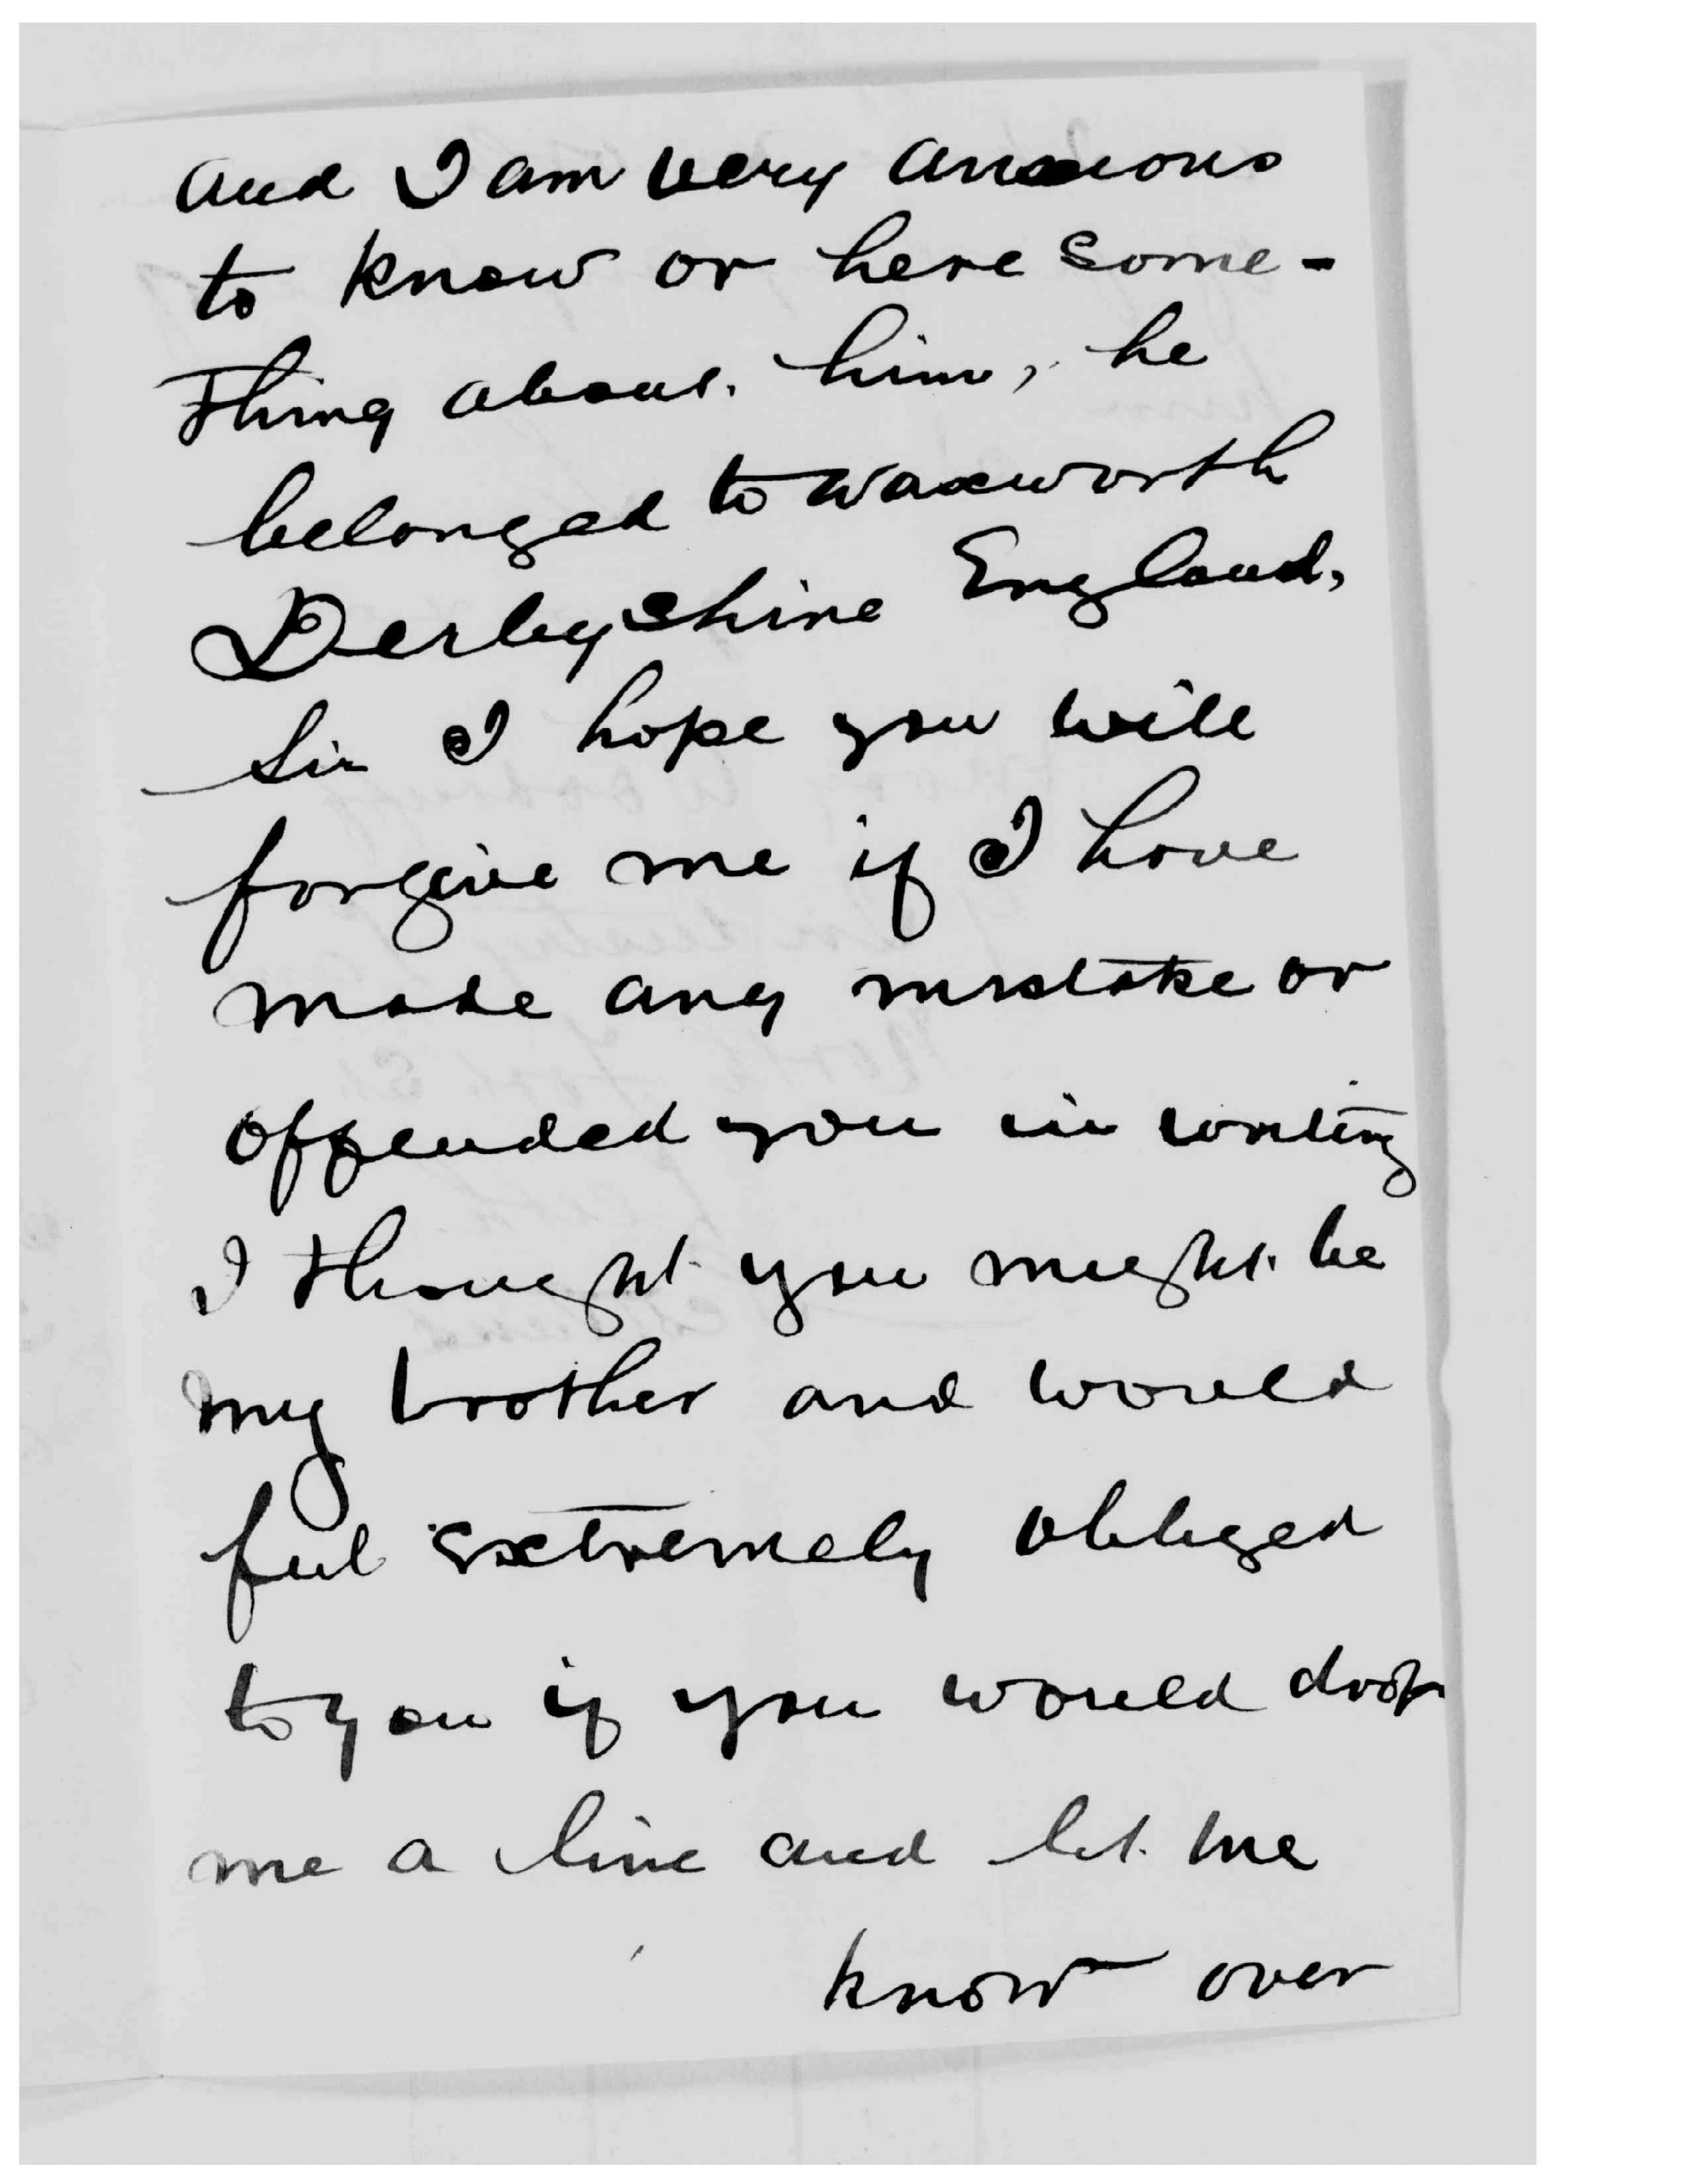 and I am very anxious
to know or here some-
thing about him, he
belonged to Waxworth
Derbyshire England,
Sir I hope you will
forgive me if I have
made any mistake or
offended you in writing
I thought you might be
my brother and would
feel extremely obliged
to you if you would drop
me a line and let me
know over